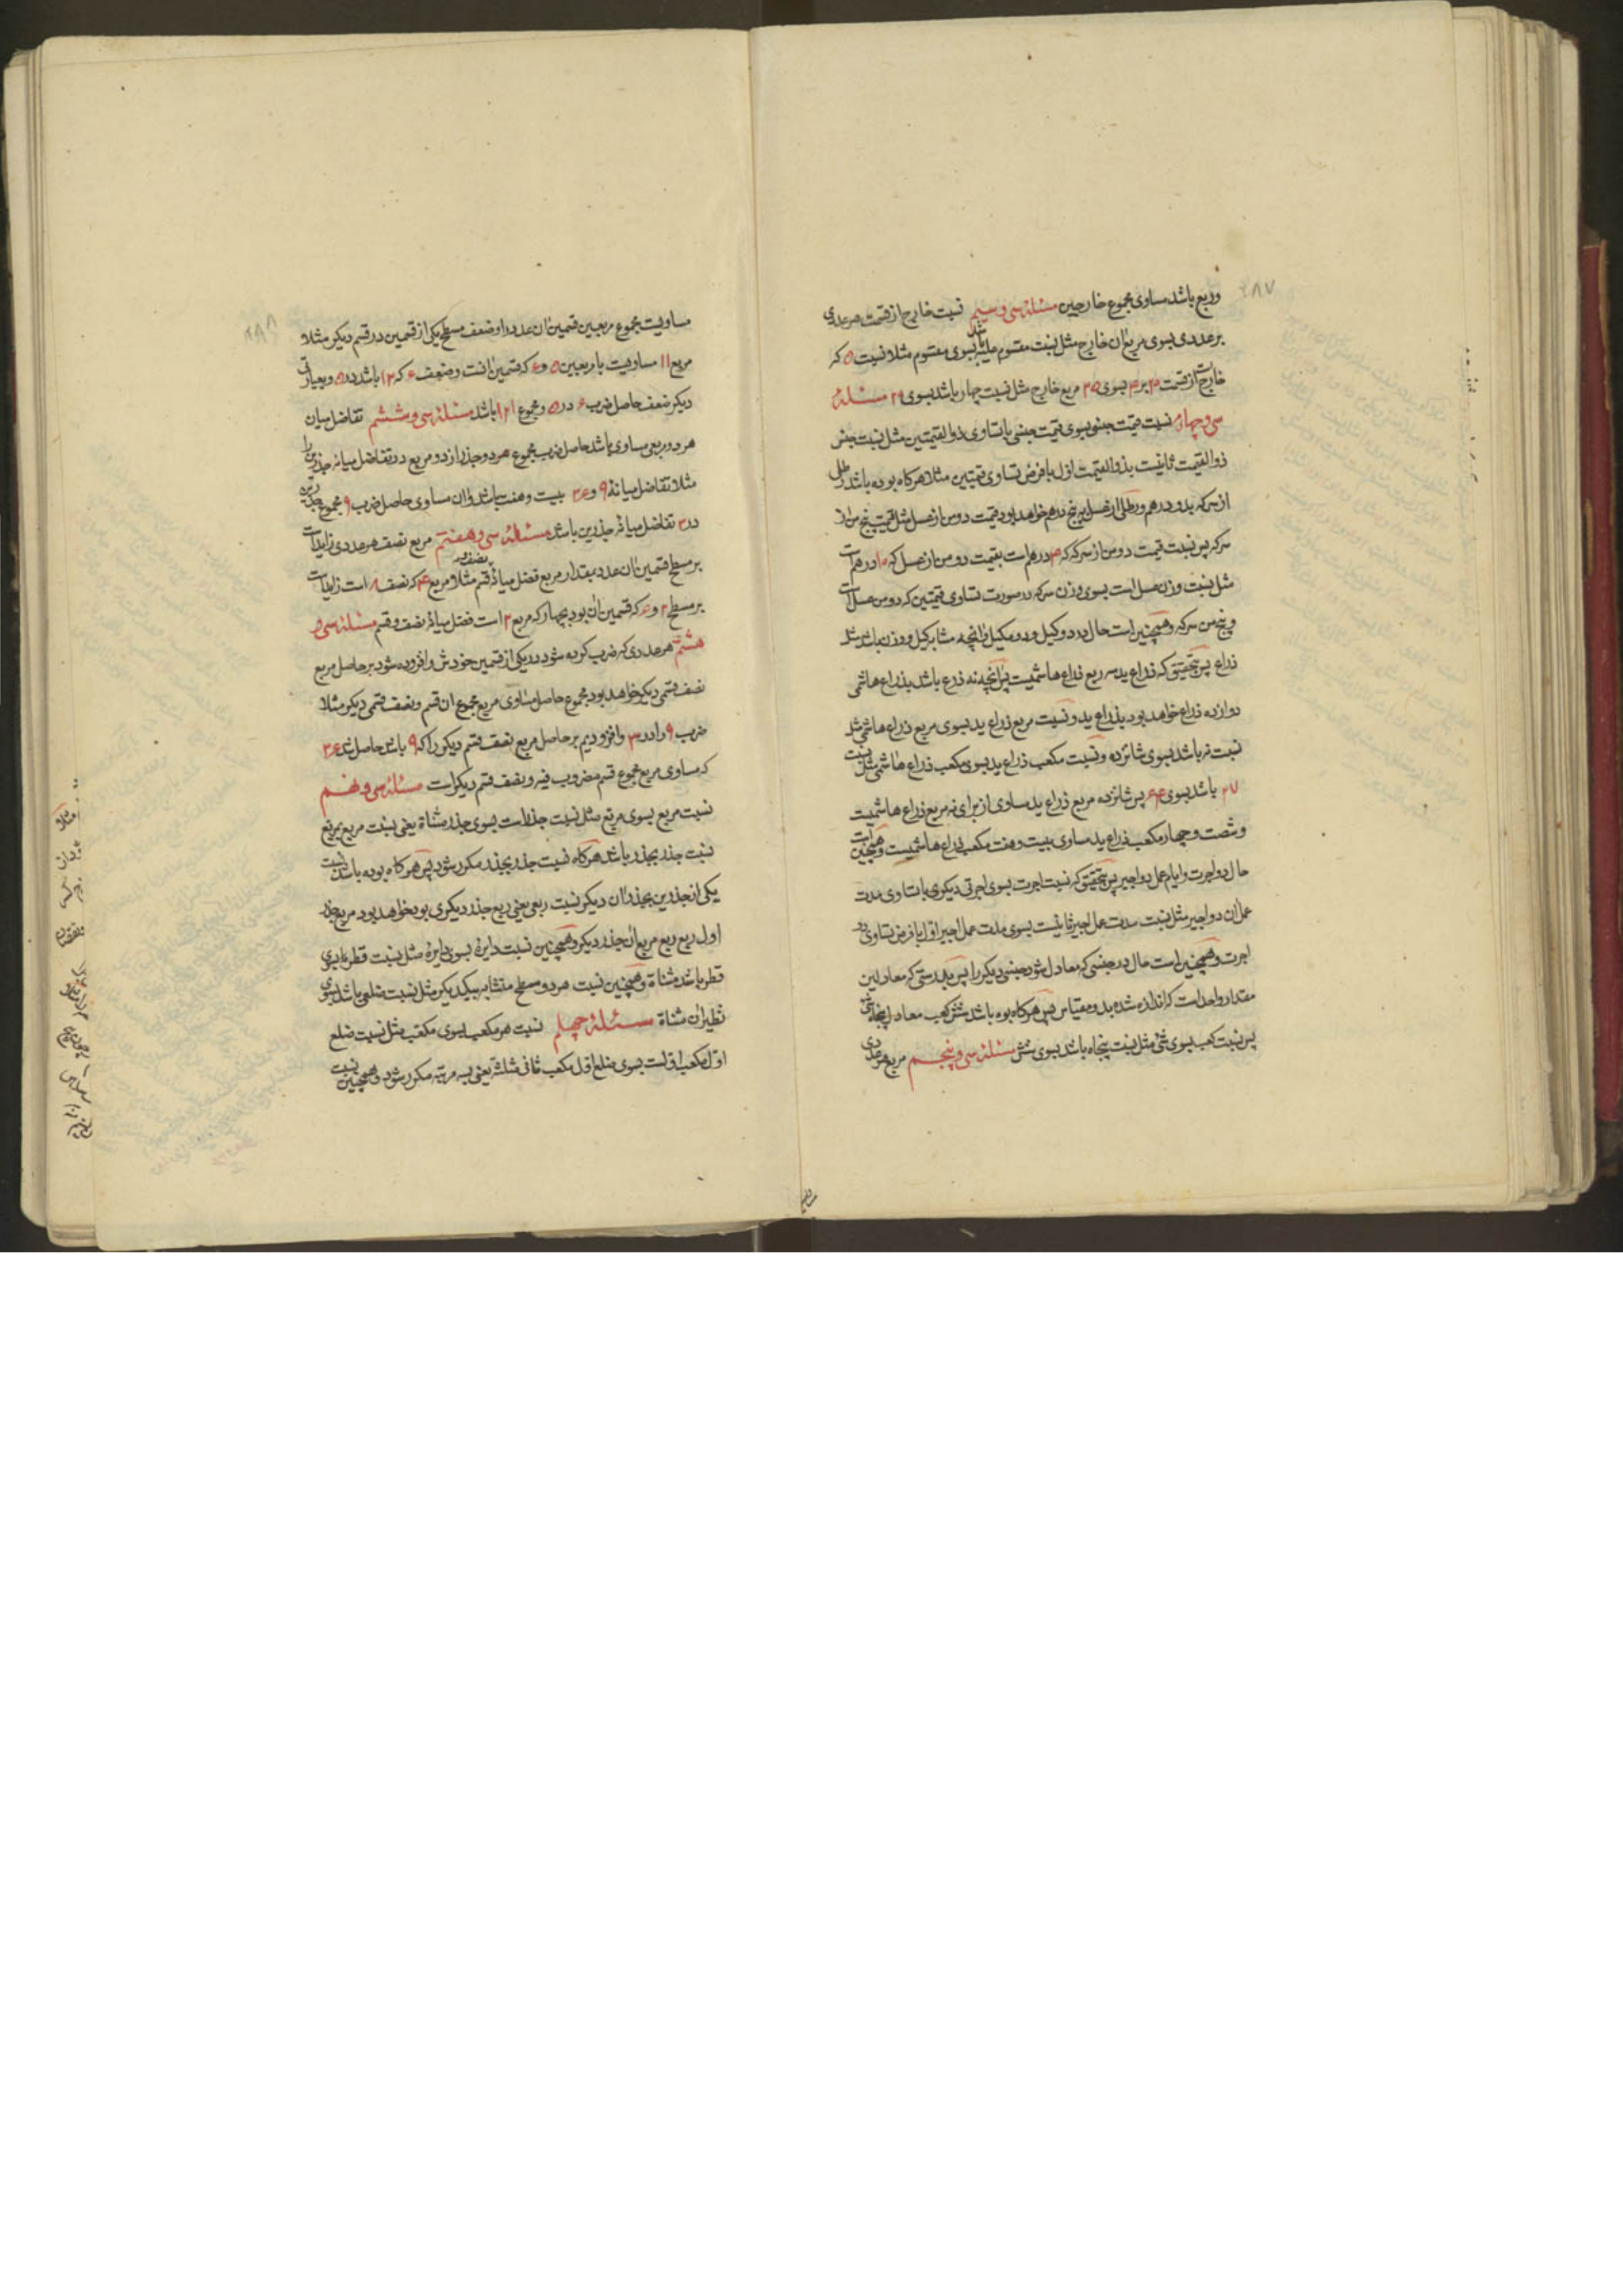 ۲۸۷
وربع باشد مساوی مجموع خارجین مسئلهٔ سی و سیم نسبت خارج از قسمت هر عددی
بر عددی بسوی مربع ان خارج مثل نسبت مقسوم علیه باشد بسوی مقسوم مثلا نسبت ۵ که
خارج از قسمت ۲۰ بر ۴ بسوی ۲۵ مربع خارج مثل نسبت چهار باشد بسوی ۲۰ مسئلهٔ
سی و چهارم نسبت قیمت جنسی بسوی قیمت جنسی با تساوی ذوالقیمتین مثل نسبت جنس
ذوالقیمت ثانیست بذوالقیمت اول با فرض تساوی قیمتین مثلا هرکاه بوده باشد رطلی
از سرکه بدو درهم و رطلی از عسل به پنج درهم خواهد بود قیمت دو من از عسل مثل قیمت پنج من از
سرکه پس نسبت قیمت دو من از سرکه که ۴ درهم است بقیمت دو من از عسل که ۱۰ درهم است
مثل نسبت وزن عسل است بسوی وزن سرکه در صورت تساوی قیمتین که دو من عسل است
و پنج من سرکه و همچنین است حال در دو کیل و دو مکیل و انچه مشابه کیل و وزن باشد مثل
ذراع پس بتحقیق که ذراع ید سه ربع ذراع هاشمیست پس انچه نه ذرع باشد بذراع هاشمی
دوازده ذراع خواهد بود بذراع ید و نسبت مربع ذراع ید بسوی مربع ذراع هاشمی مثل
نسبت نه باشد بسوی شانزده و نسبت مکعب ذراع ید بسوی مکعب ذراع هاشمی مثل نسبت
۲۷ باشد بسوی ۶۴ پس شانزده مربع ذراع ید مساوی از برای نه مربع ذراع هاشمیست
و شصت و چهار مکعب ذراع ید مساوی بیست و هفت مکعب ذراع هاشمیست و همچنین است
حال دو اجرت و ایام عمل دو اجیر پس بتحقیق که نسبت اجرت بسوی اجرتی دیکری با تساوی مدت
عمل ان دو اجیر مثل نسبت مدت عمل اجیر ثانیست بسوی مدت عمل اجیر اول با فرض تساوی دو
اجرت و همچنین است حال در جنسی که معادل شود جنسی دیکر را پس بدرستی که معادلین
مقدار واحد است که اندازه شده بدو مقیاس پس هرکاه بوده باشد شش کعب معادل پنجاه شئ
پس نسبت کعب بسوی شئ مثل نسبت پنجاه باشد بسوی شش مسئلهٔ سی و پنجم مربع هر عددی
۲۸۸
مساویست مجموع مربعین قسمین ان عدد را و ضعف مسطح یکی از قسمین در قسم دیکر مثلا
مربع ۱۱ مساویست با مربعین ۵ و ۶ که قسمین انست و ضعف ۶ که ۱۲ باشد در ۵ و بعبارتی
دیکر ضعف حاصل ضرب ۶ در ۵ و مجموع ۱۲۱ باشد مسئلهٔ سی و ششم تفاضل میان
هر دو مربعی مساوی باشد حاصل ضرب مجموع هر دو جذر از دو مربع در تفاضل میانهٔ جذرین را
مثلا تفاضل میانهٔ ۹ و ۳۶ بیست و هفت باشد و ان مساوی حاصل ضرب ۹ مجموع جذرین
در ۳ تفاضل میانهٔ جذرین باشد مسئلهٔ سی و هفتم مربع نصف هر عددی زاید است
بر مسطح قسمین ان عدد بمقدار مربع فضل میانهٔ نصف و قسم مثلا مربع ۴ که نصف ۸ است زاید است
بر مسطح ۲ و ۶ که قسمین ان بود بچهار که مربع ۲ است فضل میانهٔ نصف و قسم مسئلهٔ سی و
هشتم هر عددی که ضرب کرده شود در یکی از قسمین خودش و افزوده شود بر حاصل مربع
نصف قسمی دیکر خواهد بود مجموع حاصل مساوی مربع مجموع ان قسم و نصف قسمی دیکر مثلا
ضرب ۹ را در ۳ و افزودیم بر حاصل مربع نصف قسم دیکر را که ۹ باشد حاصل شد ۳۶
که مساوی مربع مجموع قسم مضروب فیه و نصف قسم دیکر است مسئلهٔ سی و نهم
نسبت مربع بسوی مربع مثل نسبت جذر است بسوی جذر مثناة یعنی نسبت مربع بمربع
نسبت جذر بجذر باشد هرکاه نسبت جذر بجذر مکرر شود پس هرکاه بوده باشد نسبت
یکی از جذرین بجذر ان دیکر نسبت ربعی یعنی ربع جذر دیکری بود خواهد بود مربع جذر
اول ربع ربع مربع ان جذر دیکر و همچنین نسبت دایرهٔ بسوی دایرهٔ مثل نسبت قطر باشد بسوی
قطر باشد مثناة و همچنین نسبت هر دو سطح متشابه بیکدیکر مثل نسبت ضلعی باشد بسوی
نظیر ان مثناة مسئلهٔ چهلم نسبت هر مکعب بسوی مکعب مثل نسبت ضلع
اول مکعب اولست بسوی ضلع اول مکعب ثانی مثلثه یعنی سه مرتبه مکرر شود و همچنین نسبت